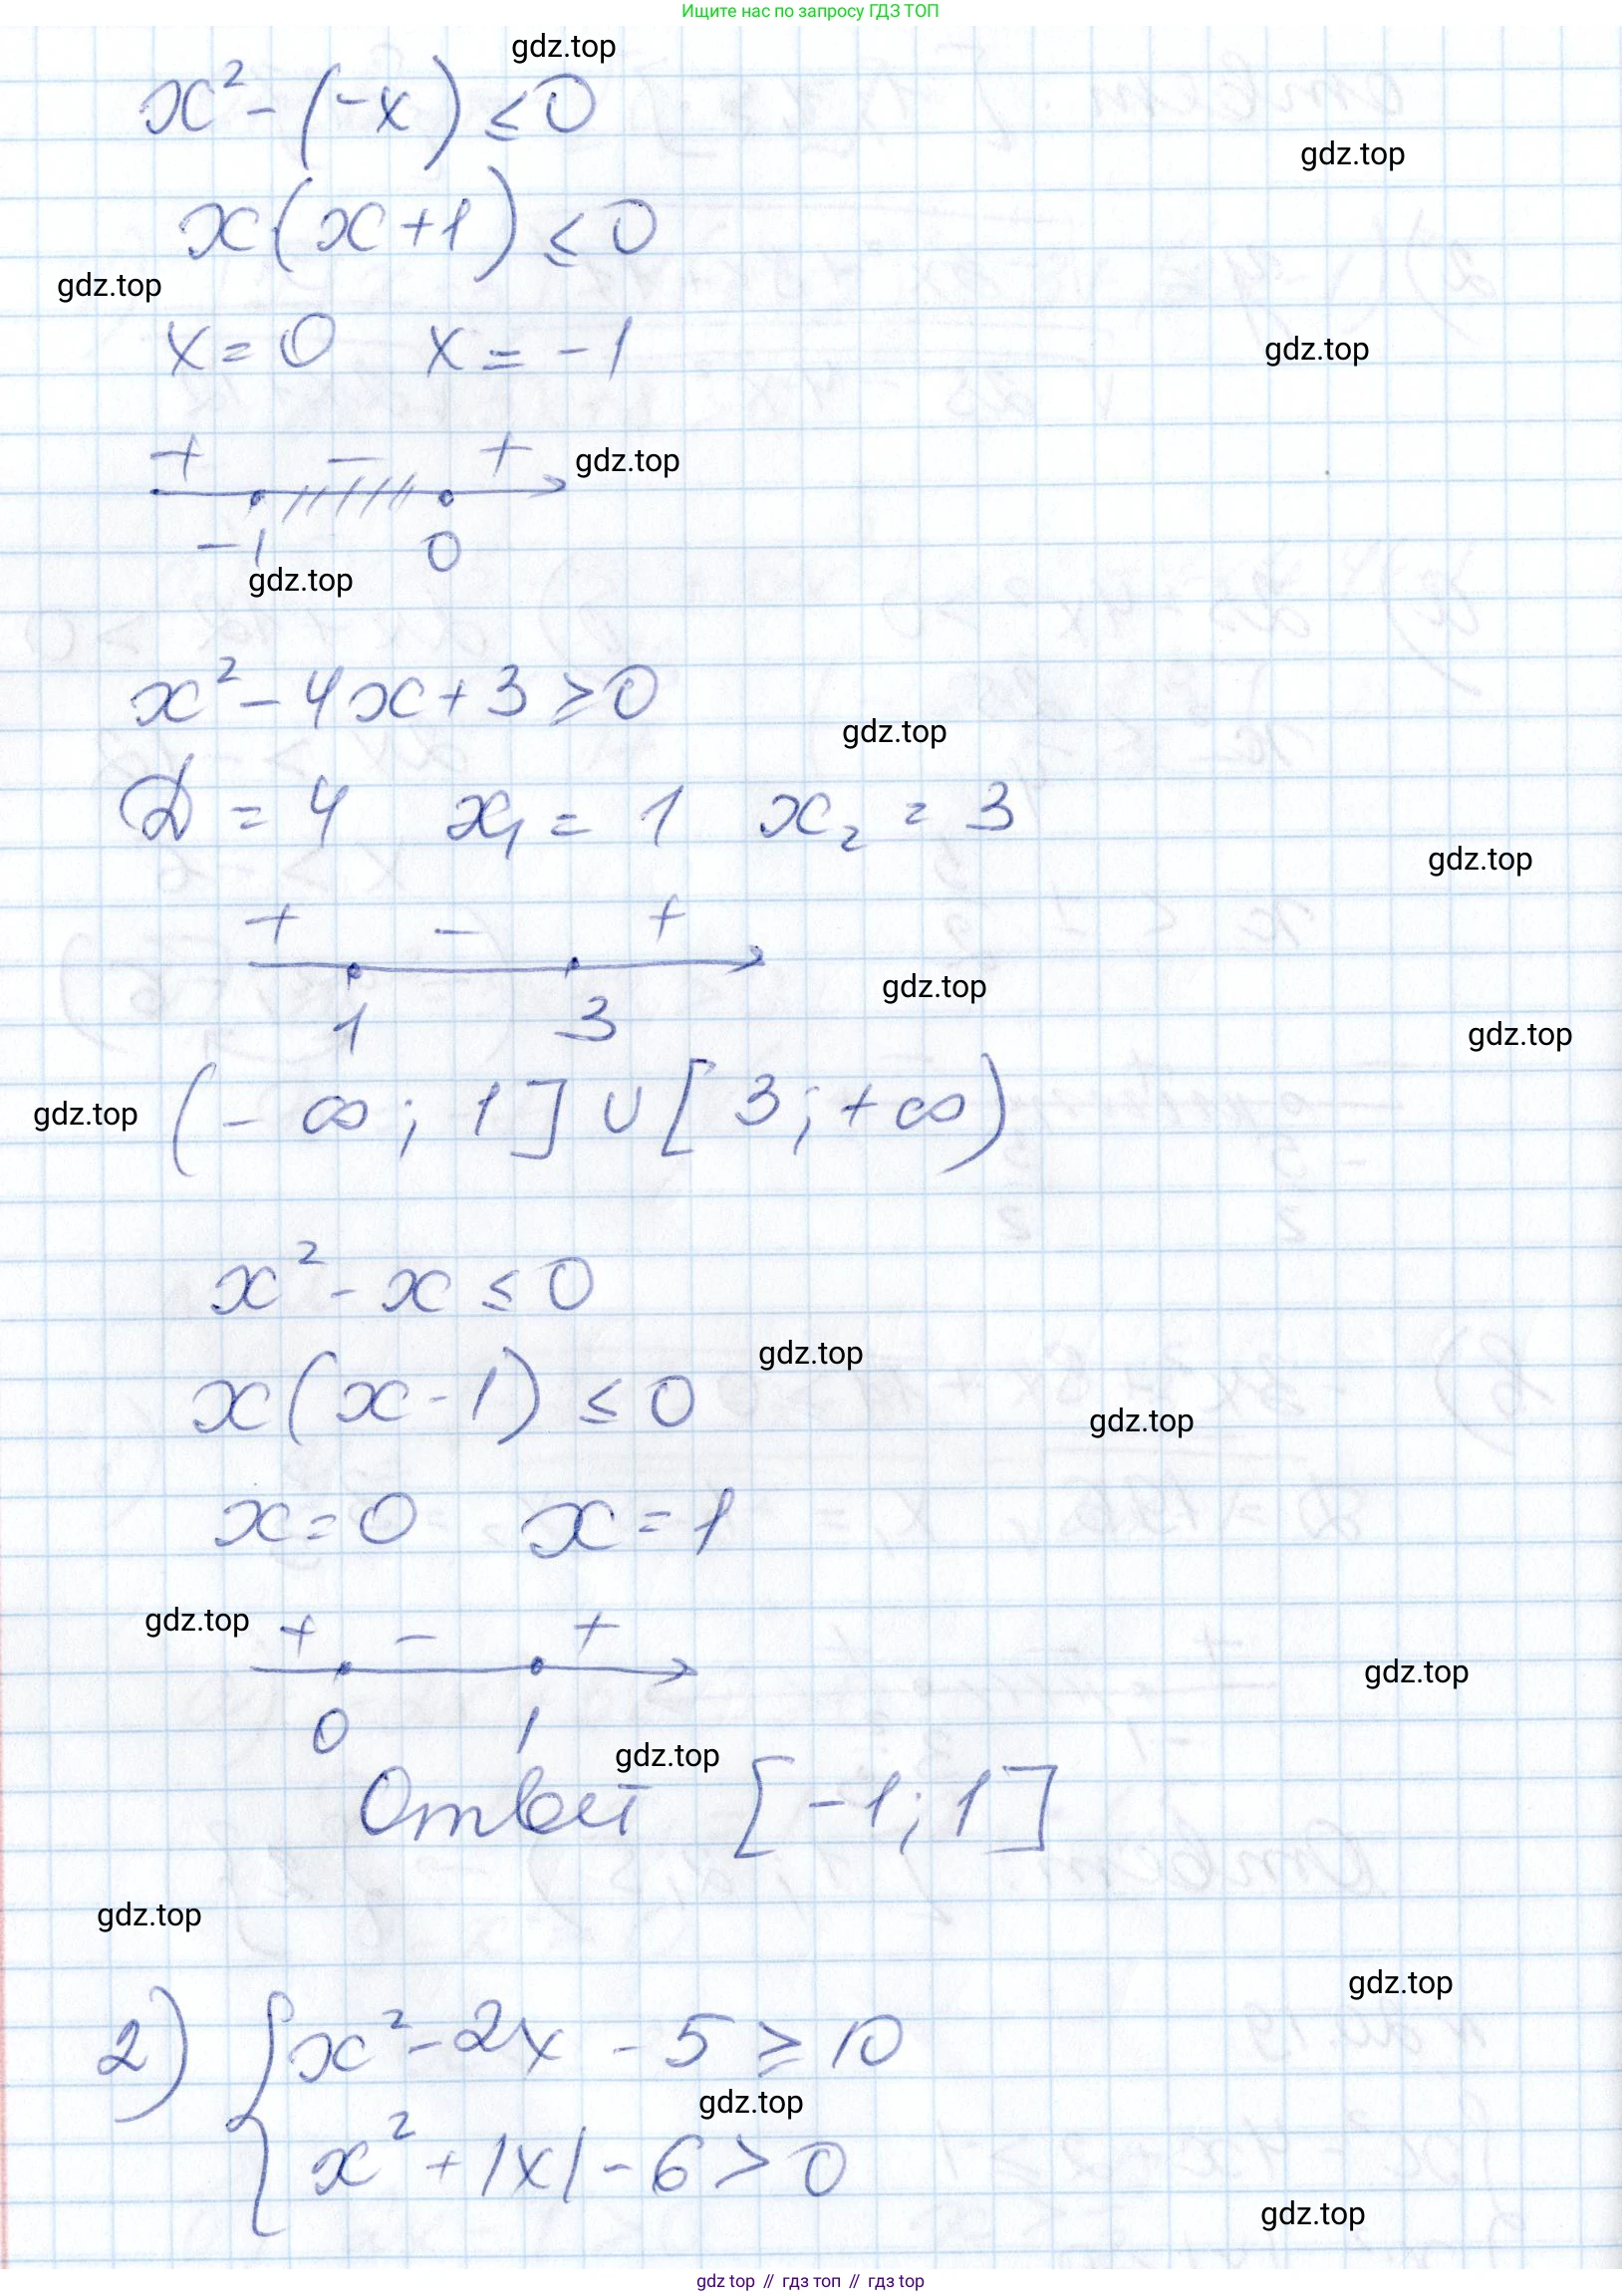 Ищите нас по запросу ГДЗ ТОП
gdz.top
x² - (-x) ≤ 0
gdz.top
x(x+1) ≤ 0
gdz.top
x = 0 x = -1
gdz.top
+ - +
gdz.top
-1 0
gdz.top
x² - 4x + 3 ≥ 0
gdz.top
D = 4 x₁ = 1 x₂ = 3
gdz.top
+ - +
gdz.top
1 3
gdz.top
gdz.top
(-∞; 1] ∪ [3; +∞)
x² - x ≤ 0
gdz.top
x(x-1) ≤ 0
gdz.top
x = 0 x = 1
gdz.top
+ - +
gdz.top
0 1
gdz.top
Ответ [-1; 1]
gdz.top
gdz.top
2) { x² - 2x - 5 ≥ 10
gdz.top
x² + |x| - 6 > 0
gdz.top
gdz top // гдз топ // гдз top